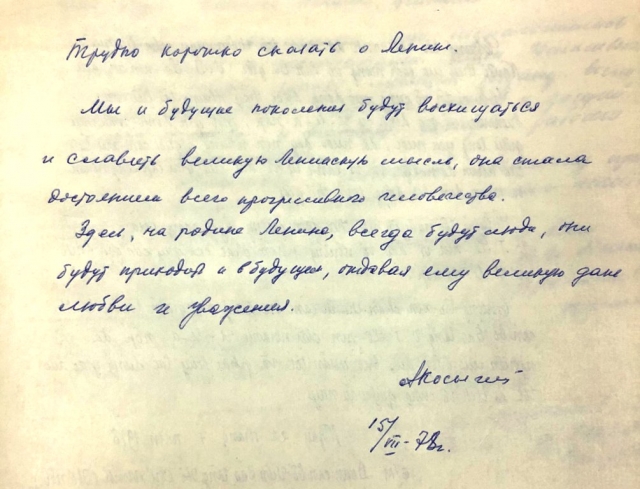 Трудно коротко сказать о Ленине.
Мы и будущие поколения будут восхищаться
и славить великую Ленинскую мысль, она стала
достоянием всего прогрессивного человечества.
Здесь, на родине Ленина, всегда будут люди, они
будут приходить и в будущем, отдавая ему великую дань
любви и уважения.
АКосыгин
15/VII-78г.